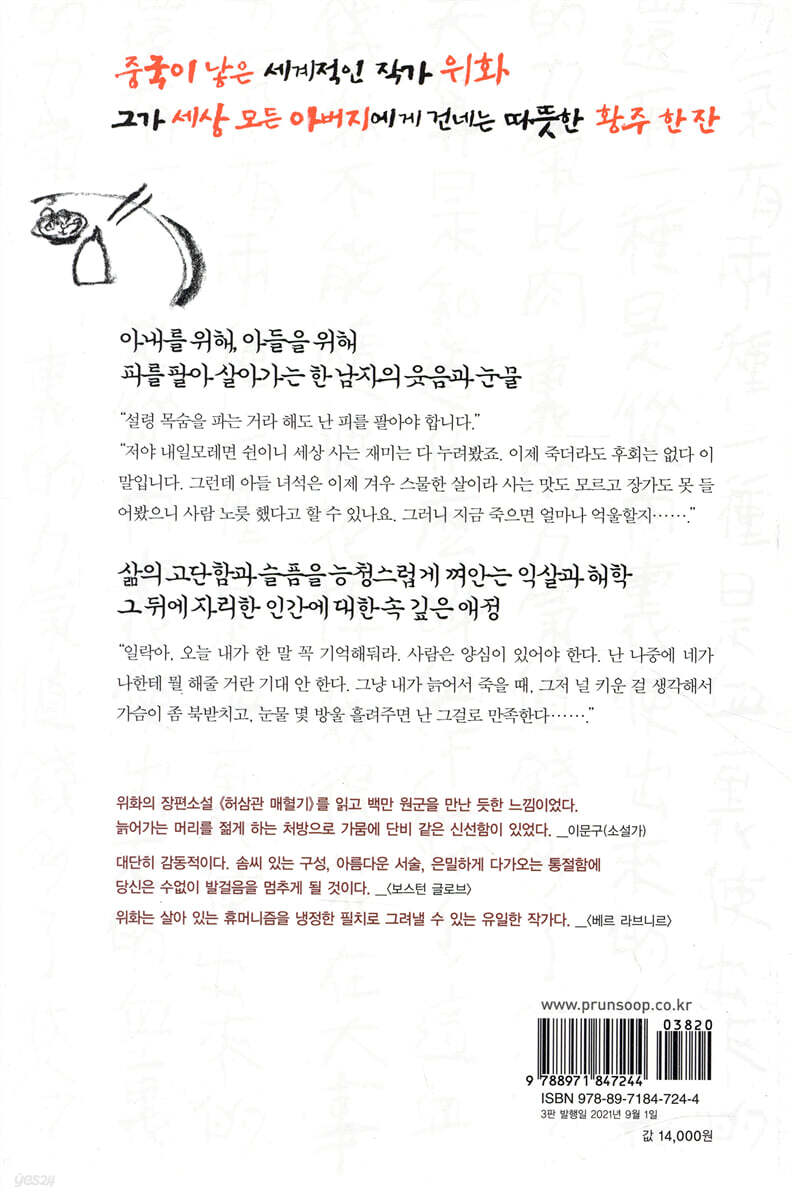 중국이 낳은 세계적인 작가 위화
그가 세상 모든 아버지에게 건네는 따뜻한 황주 한 잔
아내를 위해, 아들을 위해
피를 팔아 살아가는 한 남자의 웃음과 눈물
“설령 목숨을 파는 거라 해도 난 피를 팔아야 합니다.”
“저야 내일모레면 쉰이니 세상 사는 재미는 다 누려봤죠. 이제 죽더라도 후회는 없다 이
말입니다. 그런데 아들 녀석은 이제 겨우 스물한 살이라 사는 맛도 모르고 장가도 못 들
어봤으니 사람 노릇 했다고 할 수 있나요. 그러니 지금 죽으면 얼마나 억울할지…….”
삶의 고단함과 슬픔을 능청스럽게 껴안는 익살과 해학
그 뒤에 자리한 인간에 대한 속 깊은 애정
“일락아, 오늘 내가 한 말 꼭 기억해둬라. 사람은 양심이 있어야 한다. 난 나중에 네가
나한테 뭘 해줄 거란 기대 안 한다. 그냥 내가 늙어서 죽을 때, 그저 널 키운 걸 생각해서
가슴이 좀 북받치고, 눈물 몇 방울 흘려주면 난 그걸로 만족한다…….”
위화의 장편소설 《허삼관 매혈기》를 읽고 백만 원군을 만난 듯한 느낌이었다.
늙어가는 머리를 젊게 하는 처방으로 가뭄에 단비 같은 신선함이 있었다. _이문구(소설가)
대단히 감동적이다. 솜씨 있는 구성, 아름다운 서술, 은밀하게 다가오는 통절함에
당신은 수없이 발걸음을 멈추게 될 것이다. _〈보스턴 글로브〉
위화는 살아 있는 휴머니즘을 냉정한 필치로 그려낼 수 있는 유일한 작가다. _〈베르 라브니르〉
www.prunsoop.co.kr
03820
9 788971 847244
ISBN 978-89-7184-724-4
3판 발행일 2021년 9월 1일
값 14,000원
yes24